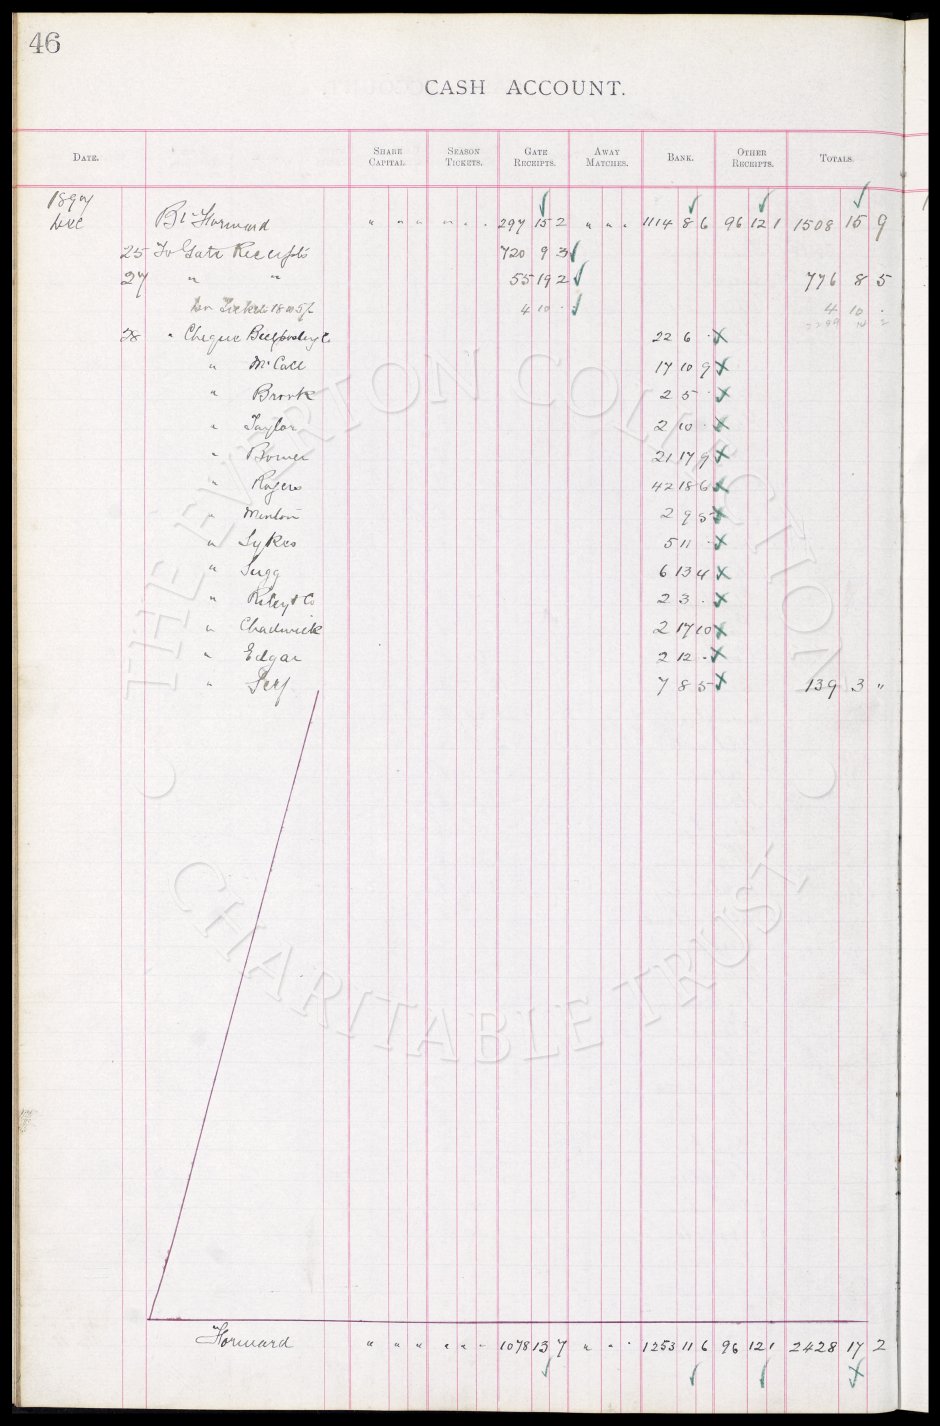 46
CASH ACCOUNT.
DATE. SHARE CAPITAL. SEASON TICKETS. GATE RECEIPTS. AWAY MATCHES. BANK. OTHER RECEIPTS. TOTALS.
1897
Dec Bt Forward " " " " " " 297 15 2 " " " 1114 8 6 96 12 1 1508 15 9
25 To Gate Receipts 720 9 3
27 " " 55 19 2 776 8 5
Tickets 18 @ 5/- 4 10 - 4 10 -
28 " Cheque 22 6 -
" McCall 17 10 9
" Brook 2 5 -
" Taylor 2 10 -
" Bower 21 17 9
" Rogers 42 18 6
" Minton 2 9 5
" Sykes 5 11 -
" Sugg 6 13 4
" Riley & Co 2 3 -
" Chadwick 2 17 10
" Edgar 2 12 -
" Self 7 8 5 139 3 "
Forward " " " " " " 1078 13 7 " " " 1253 11 6 96 12 1 2428 17 2
THE EVERTON COLLECTION
CHARITABLE TRUST